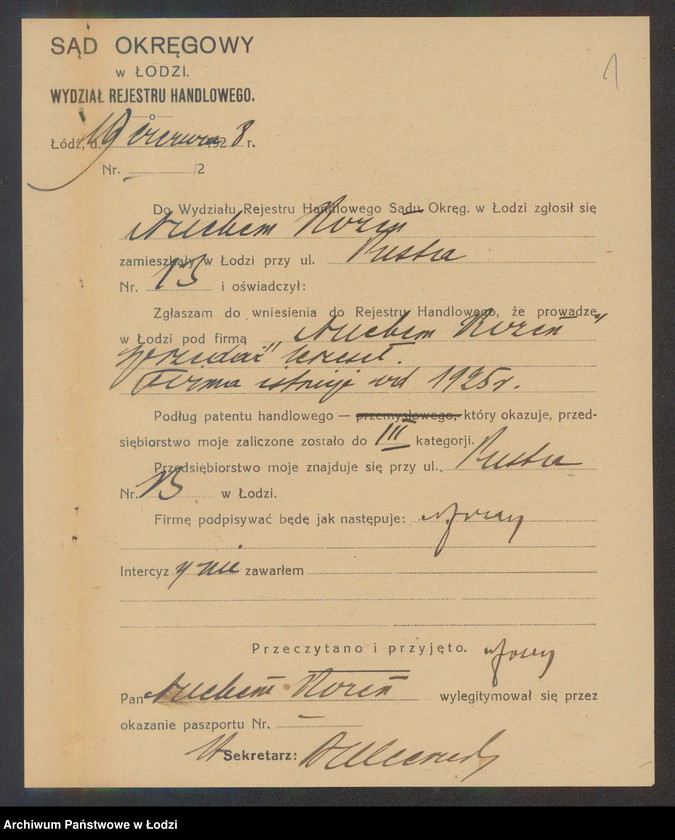 SĄD OKRĘGOWY
w ŁODZI.
WYDZIAŁ REJESTRU HANDLOWEGO.
1
Łódź, d. 19 czerwca 1928 r.
Nr. /2
Do Wydziału Rejestru Handlowego Sądu Okręg. w Łodzi zgłosił się
Nuchem Rozen
zamieszkały w Łodzi przy ul. Pusta
Nr. 13 i oświadczył:
Zgłaszam do wniesienia do Rejestru Handlowego, że prowadzę
w Łodzi pod firmą „Nuchem Rozen"
sprzedaż krzeseł.
Firma istnieje od 1925 r.
Podług patentu handlowego — przemysłowego, który okazuje, przed-
siębiorstwo moje zaliczone zostało do III kategorji.
Przedsiębiorstwo moje znajduje się przy ul. Pusta
Nr. 13 w Łodzi.
Firmę podpisywać będę jak następuje:
Intercyzy nie zawarłem
Przeczytano i przyjęto.
Pan Nuchem Rozen wylegitymował się przez
okazanie paszportu Nr. —
Sekretarz:
Archiwum Państwowe w Łodzi